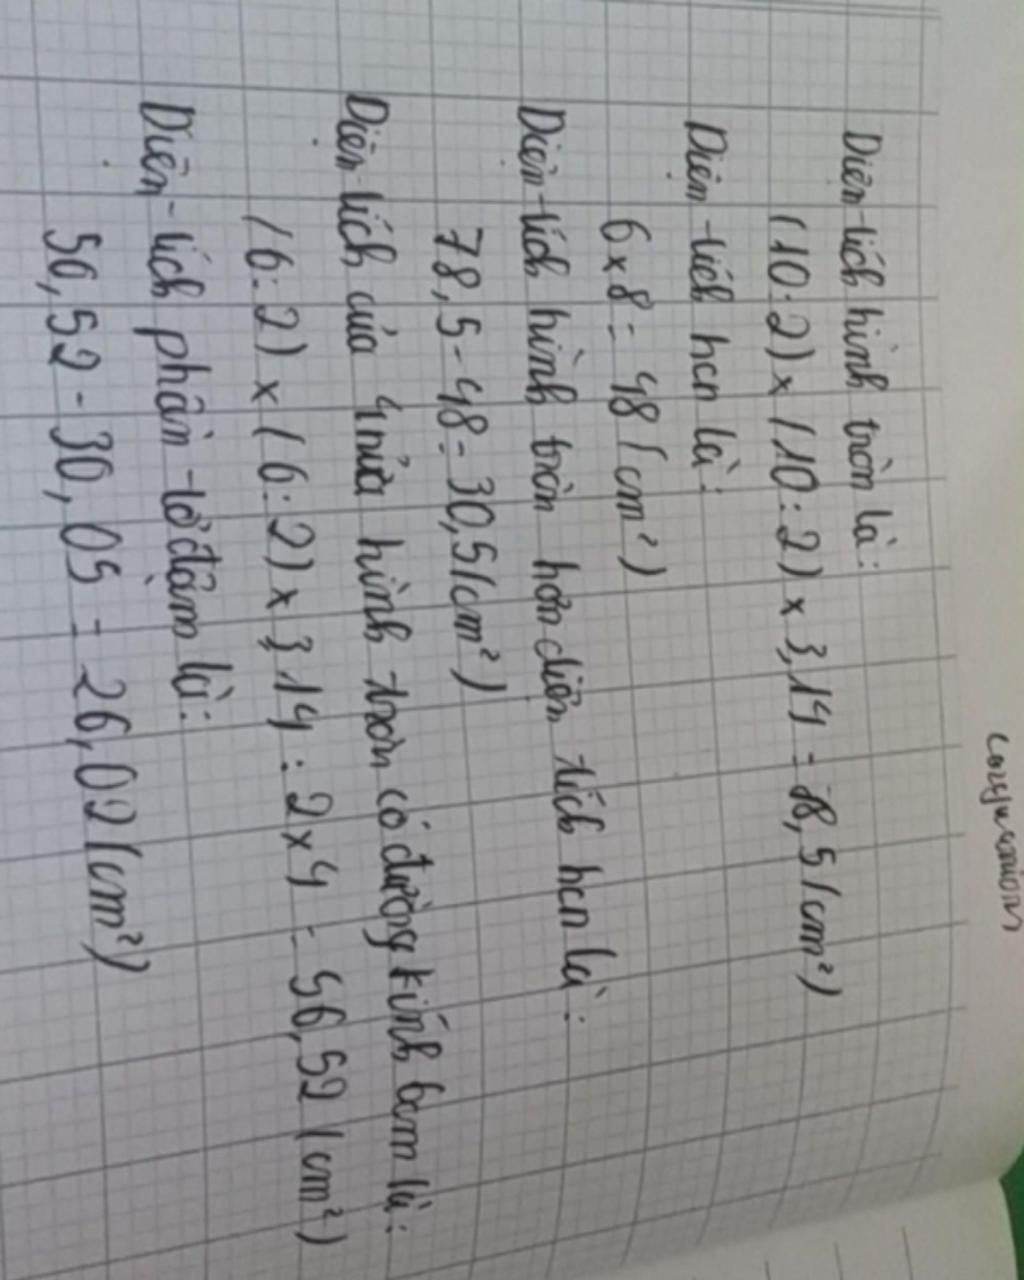 Diện tích hình tròn là:
(10:2) x (10:2) x 3,14 = 78,5 (cm²)
Diện tích hcn là:
6 x 8 = 48 (cm²)
Diện tích hình tròn hơn diện tích hcn là:
78,5 - 48 = 30,5 (cm²)
Diện tích của 4 nửa hình tròn có đường kính 6cm là:
(6:2) x (6:2) x 3,14 : 2 x 4 = 56,52 (cm²)
Diện tích phần tô đậm là:
56,52 - 30,05 = 26,02 (cm²)